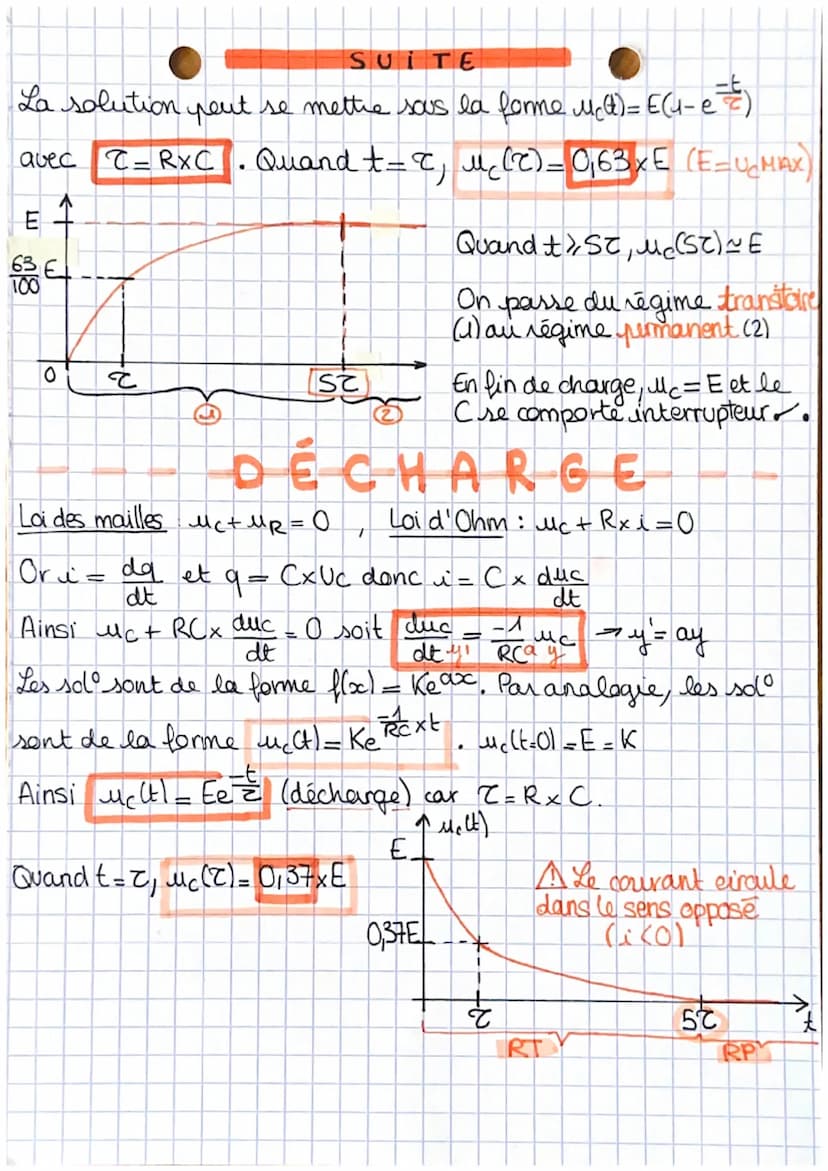 SUiTE
La solution peut se mettre sous la forme uc(t)= E(1-e^(-t/τ))
avec τ = R×C. Quand t = τ, uc(τ) = 0,63×E (E=UcMAX)
E
63/100 E
0 τ 5τ
1 2
Quand t ⩾ 5τ, uc(5τ) ≃ E
On passe du régime transitoire
(1) au régime permanent (2)
En fin de charge, uc = E et le
C se comporte interrupteur
DÉCHARGE
Loi des mailles : uc + uR = 0 , Loi d'Ohm : uc + R×i = 0
Or i = dq/dt et q = C×Uc donc i = C × duc/dt
Ainsi uc + RC× duc/dt = 0 soit duc/dt = -1/RC uc → y' = ay
y' a y
Les sol° sont de la forme f(x) = Ke^(ax). Par analogie, les sol°
sont de la forme uc(t) = Ke^(-1/RC ×t) . uc(t=0) = E = K
Ainsi uc(t) = Ee^(-t/τ) (décharge) car τ = R×C.
Quand t = τ, uc(τ) = 0,37×E
uc(t)
E
0,37E
τ 5τ t
RT RP
⚠ Le courant circule
dans le sens opposé
(i<0)